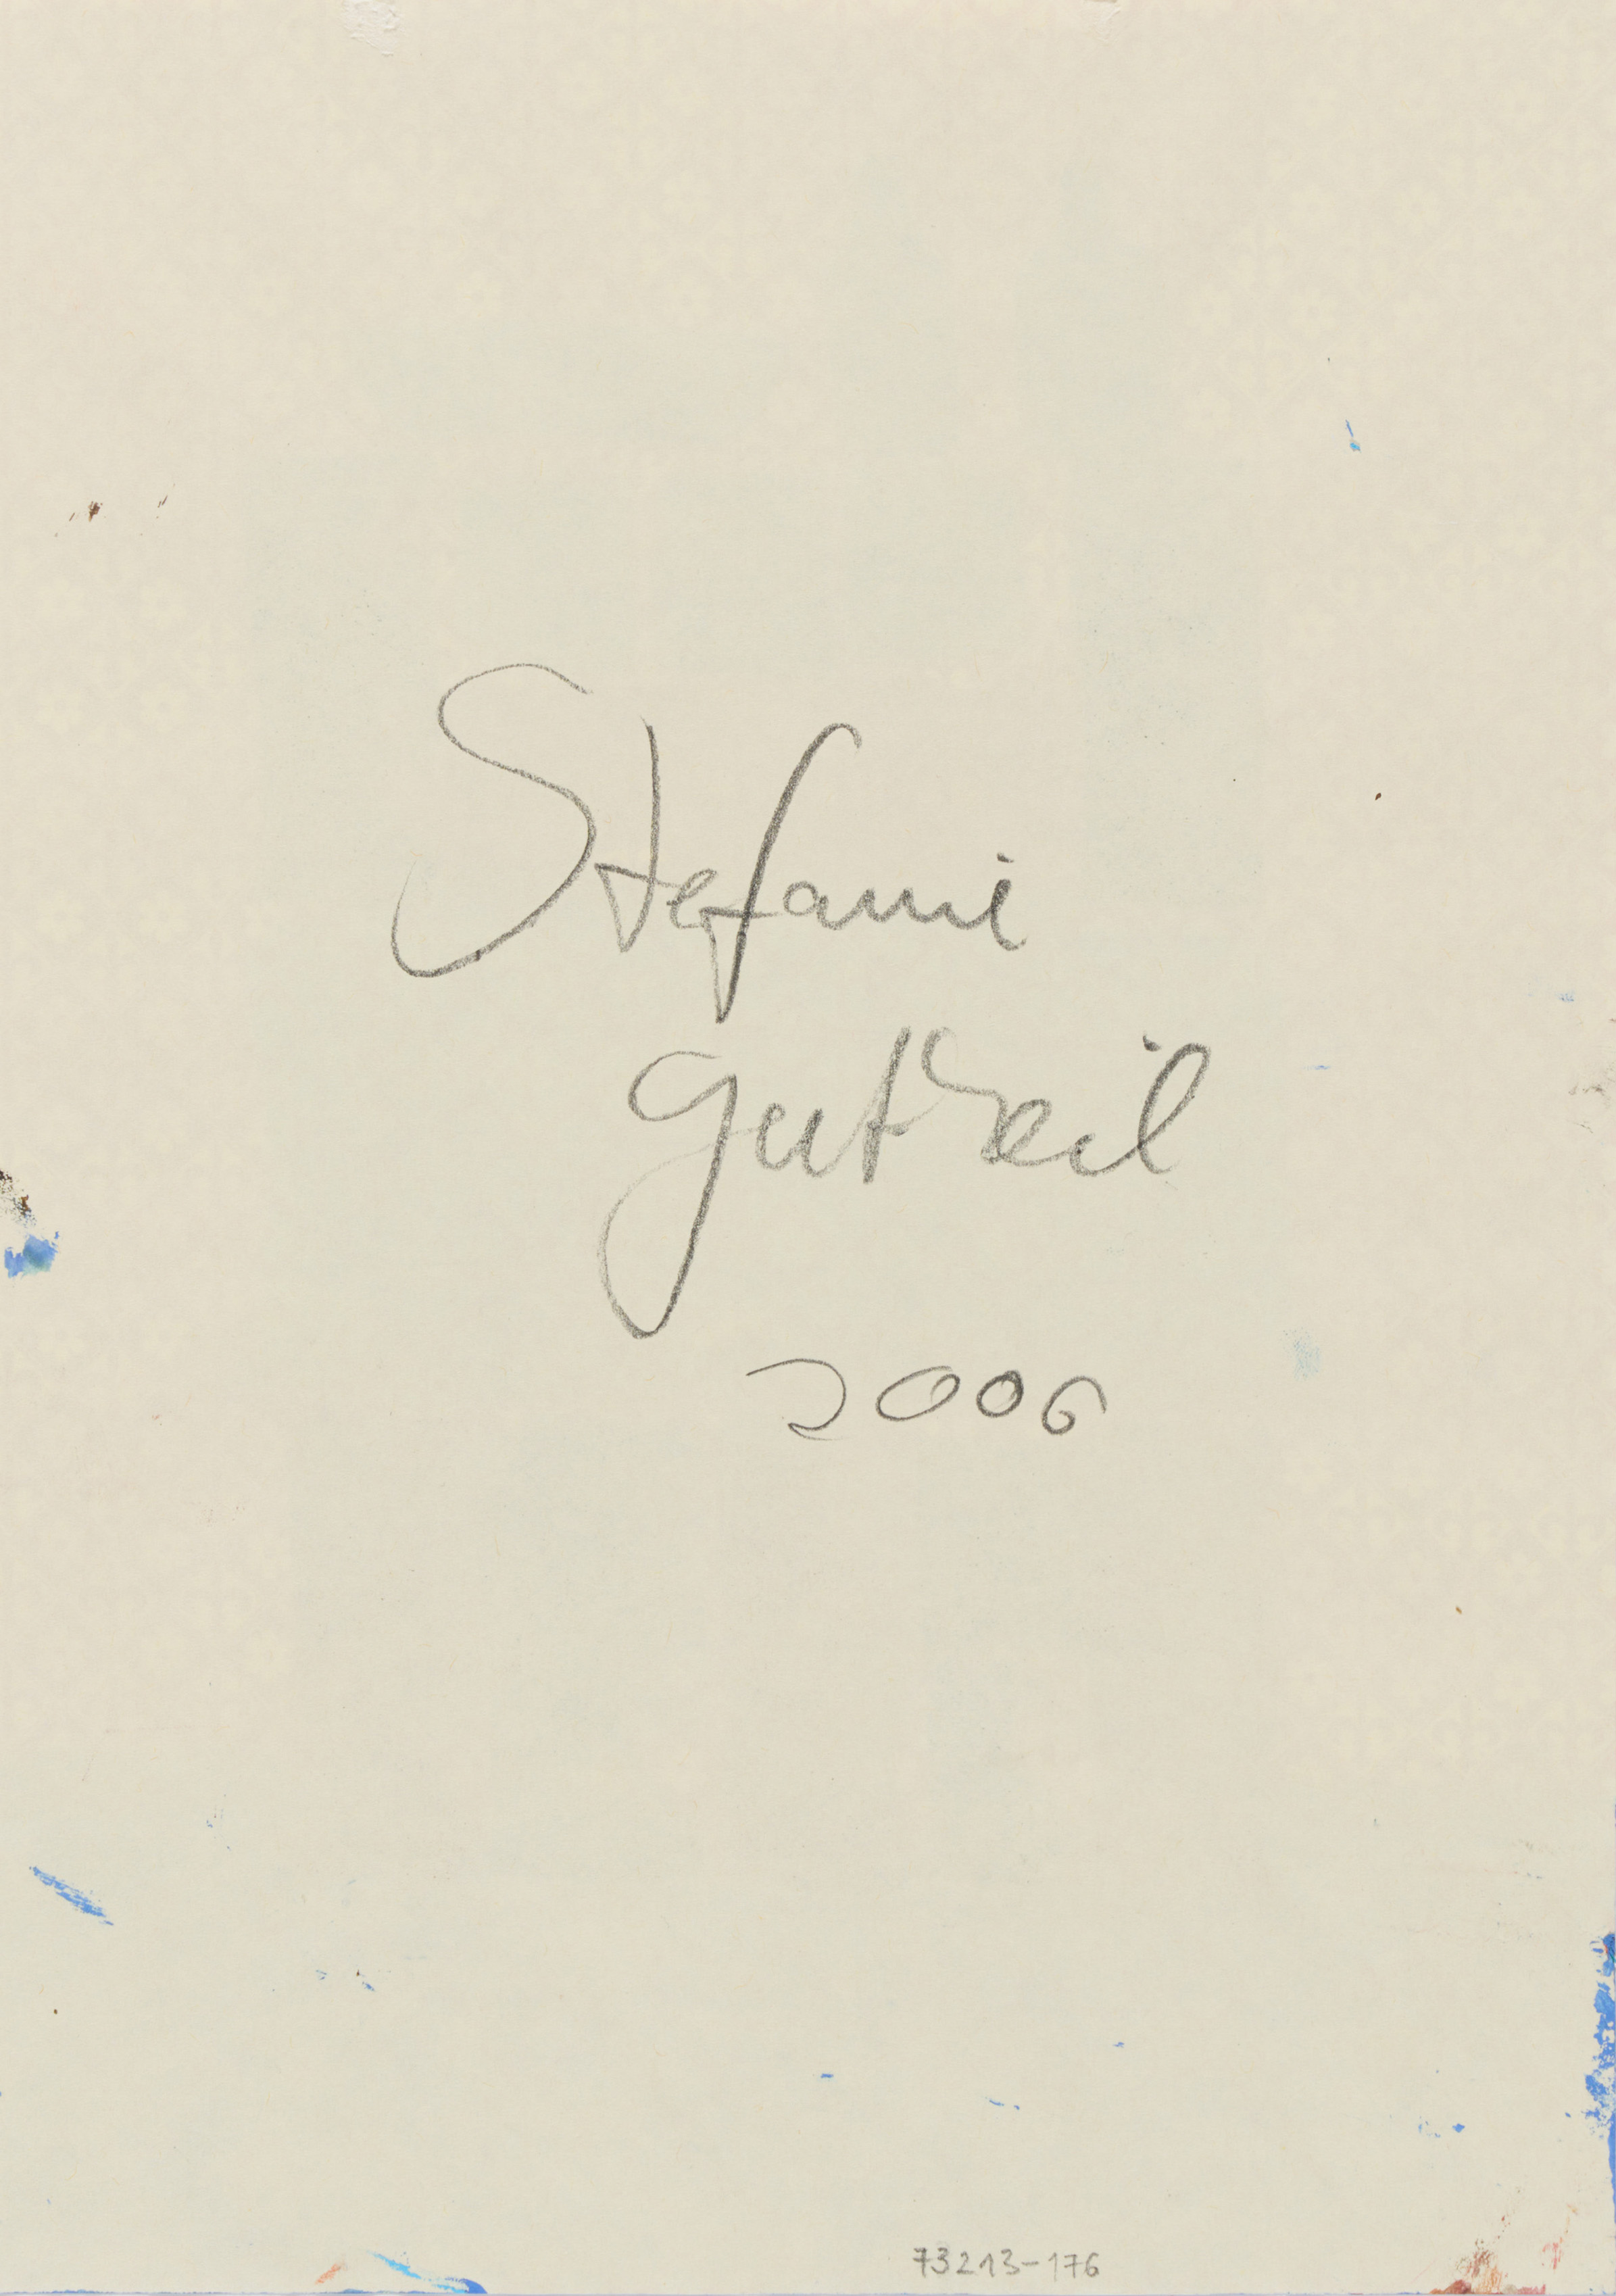 Stefanie
Gutheil
2006
73213-176